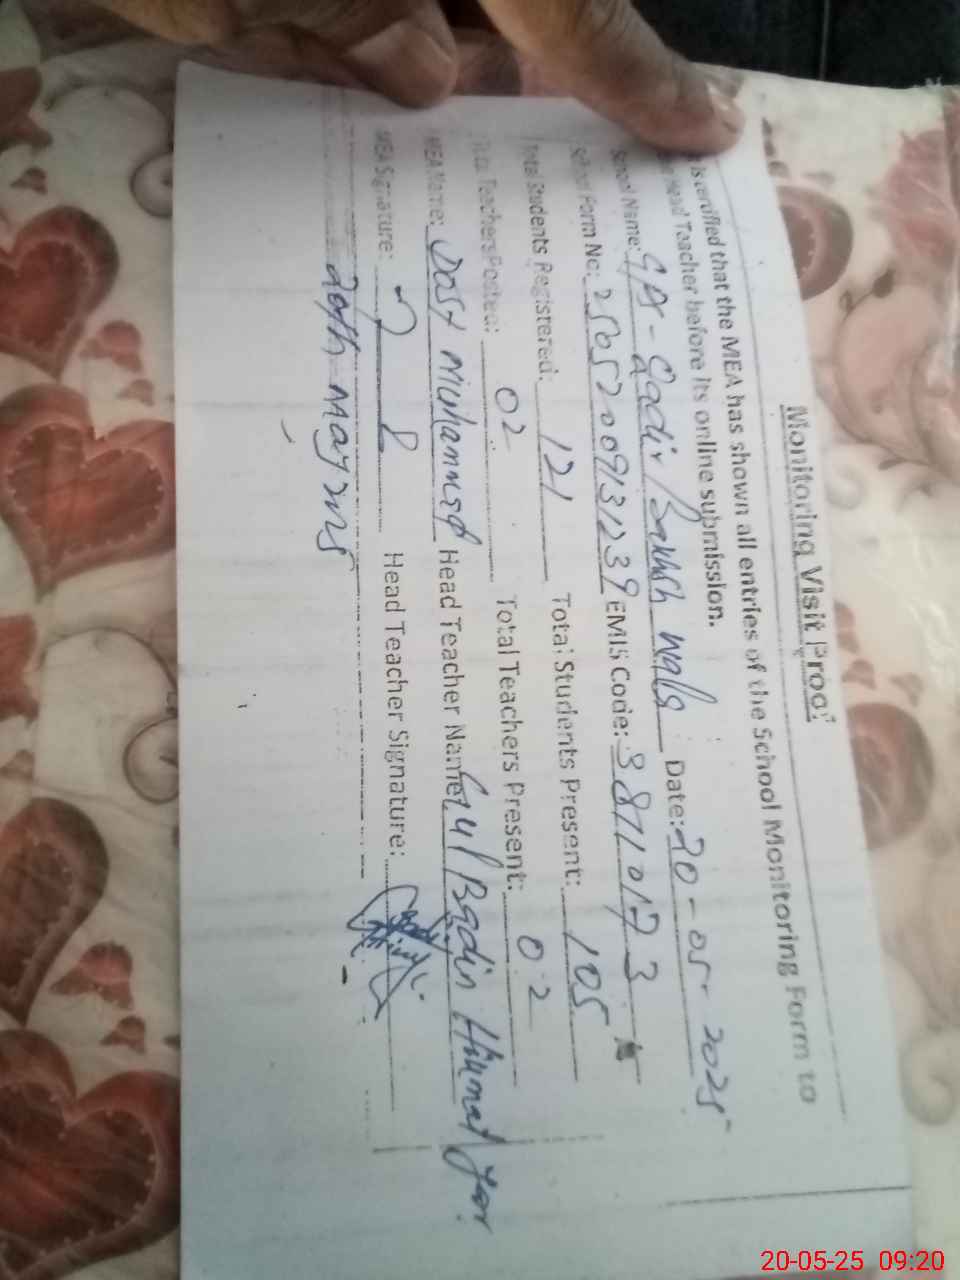 Monitoring Visit Proof
is certified that the MEA has shown all entries of the School Monitoring Form to
Head Teacher before its online submission.
School Name: GPS - Qadir Bakhsh Wala Date: 20-05-2025
School Form No: 2505200931239 EMIS Code: 38710173
Total Students Registered: 121 Total Students Present: 105
Total Teachers Posted: 02 Total Teachers Present: 02
MEA Name: Dost Muhammad Head Teacher Name: Gul Badin Himmat
MEA Signature: Head Teacher Signature:
20th May 2025
20-05-25 09:20